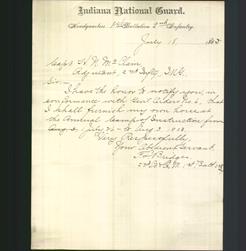 Indiana National Guard.
Headquarters 1st Battalion 2nd Infantry.
July 18,
Capt H. H. McLain
Adjutant, 2nd Infty, I.N.G.
Sir:-
I have the honor to notify you, in
conformance with Genl Orders No 6, that
I shall furnish my own horse at
the Annual Camp of Instruction from
July 26 to Aug 2,
Very Respectfully
Your Obedient Servant.